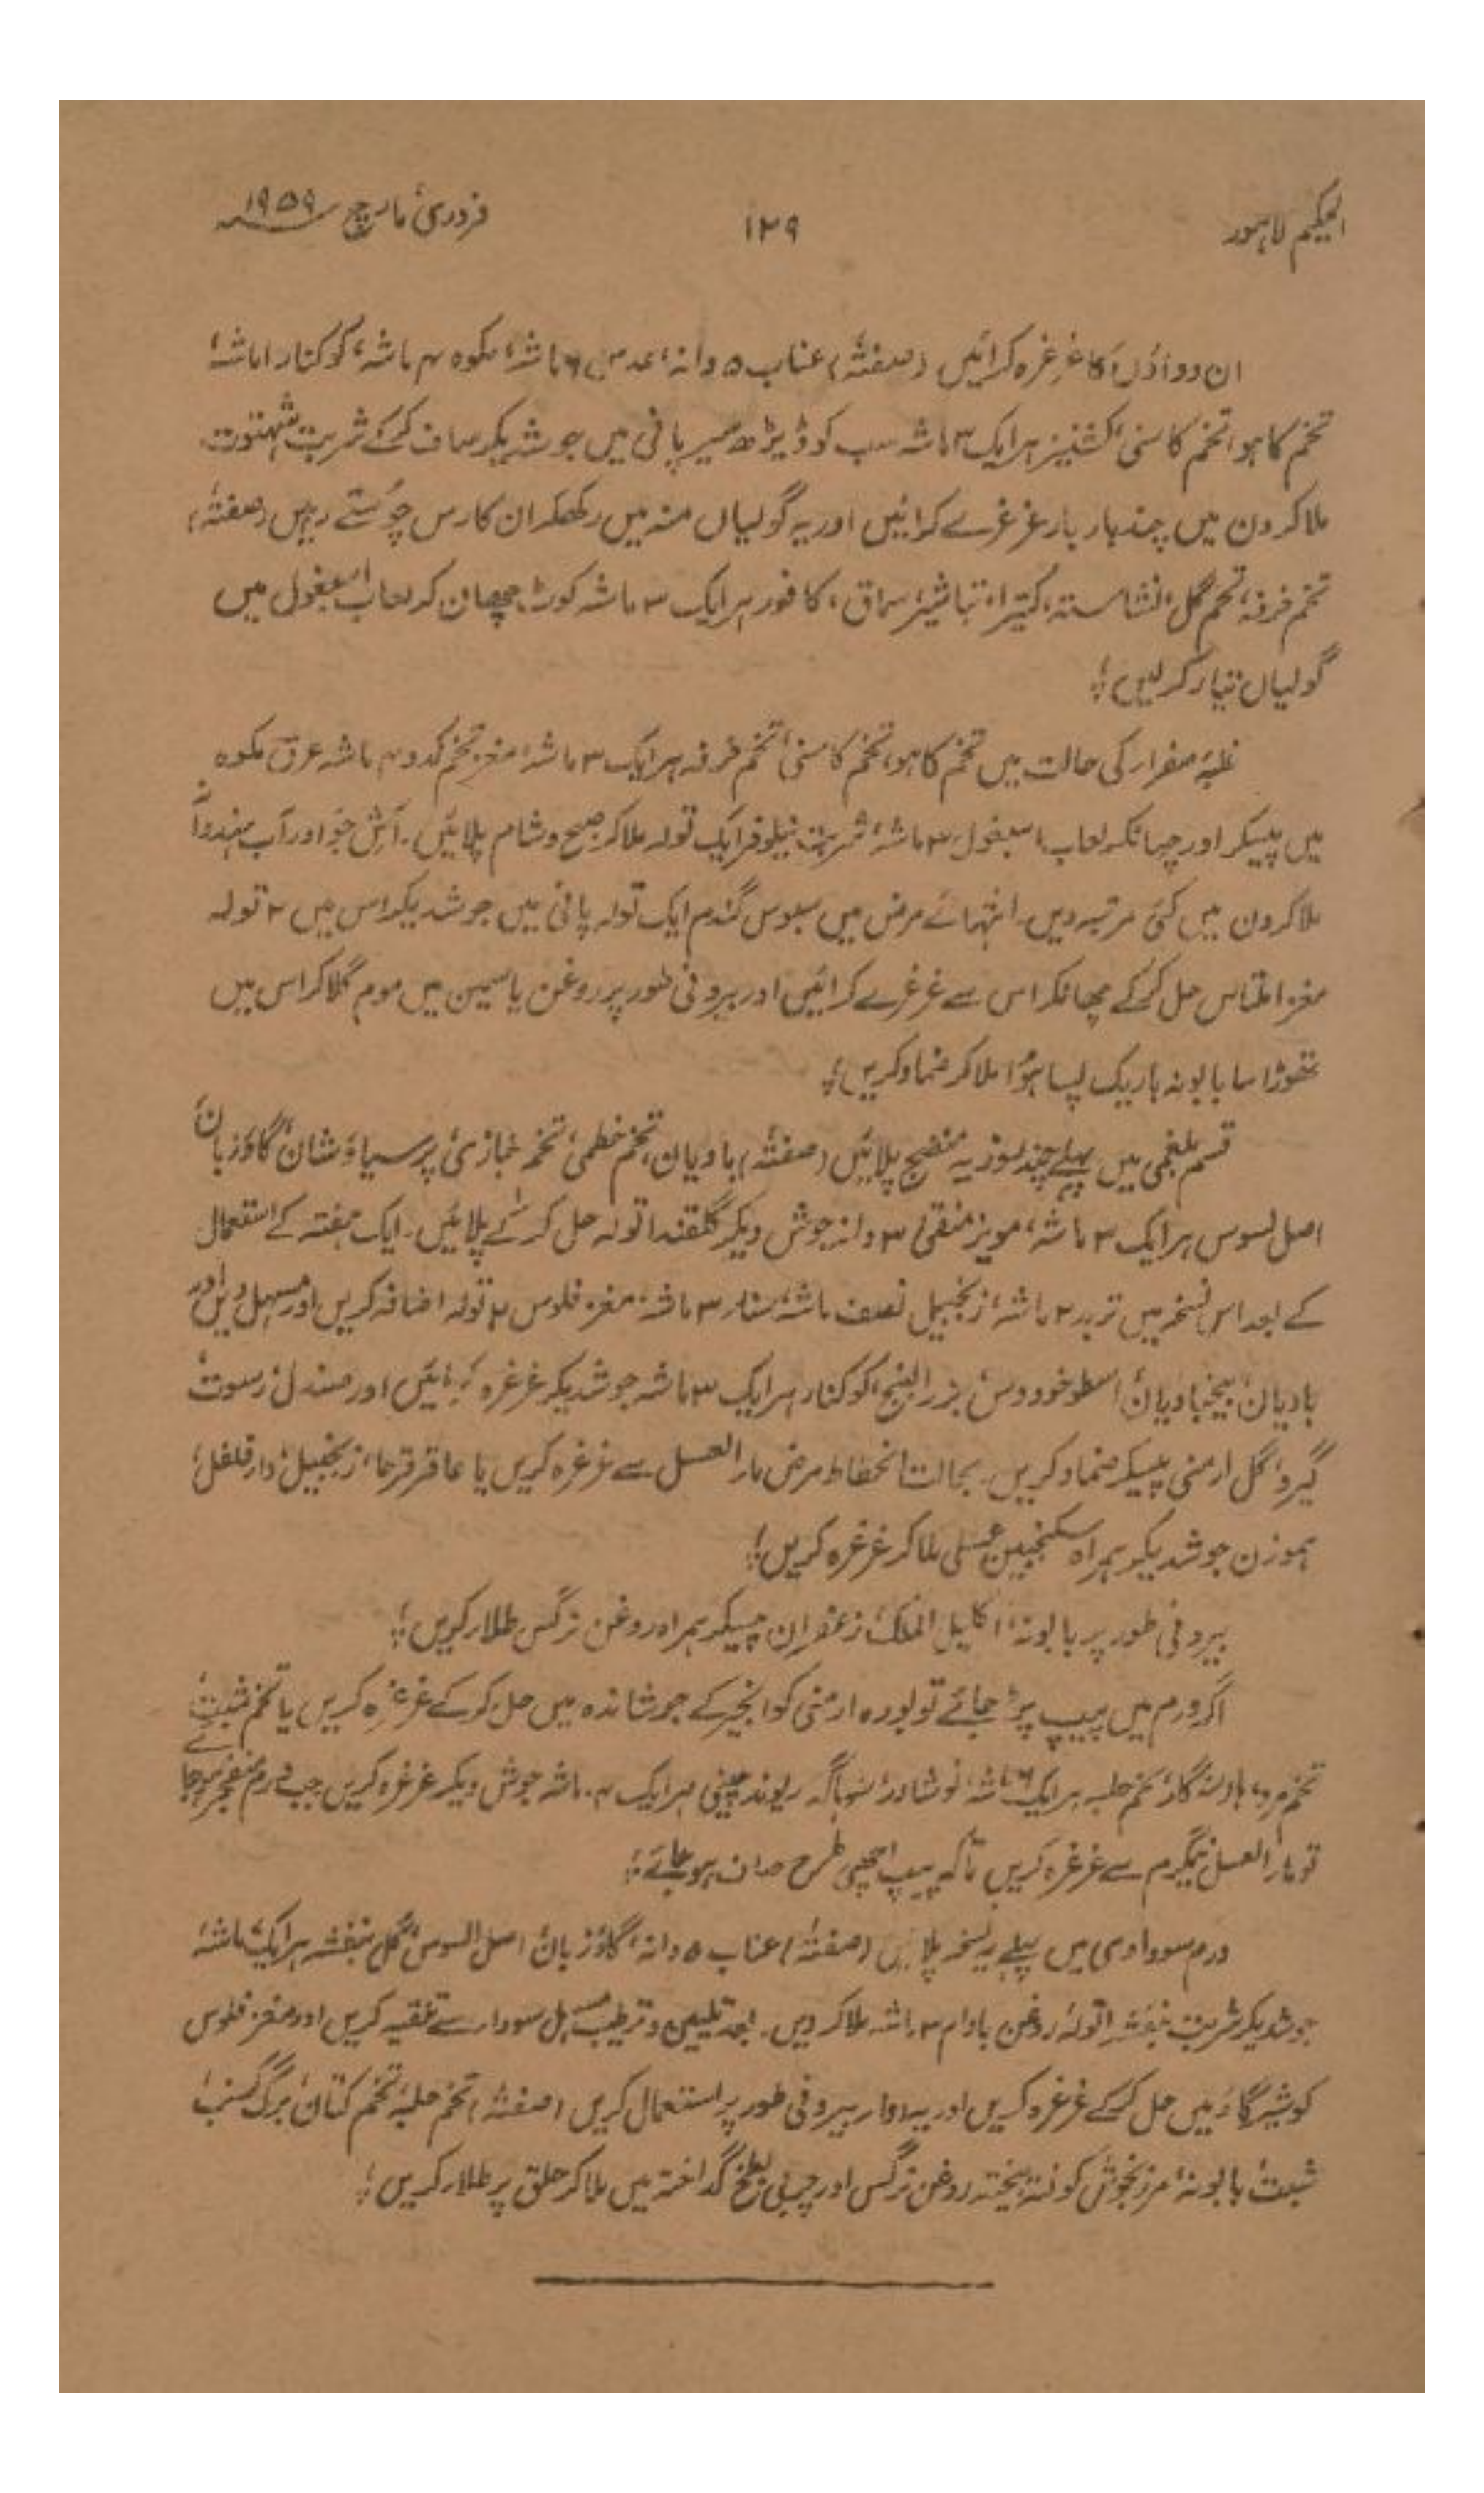 الحکیم لاہور
۱۲۹
فروری، مارچ ۱۹۵۹
ان دواؤں کا غرغرہ کرائیں (صفتہ) عناب ۵ دانہ، عدس ۶ ماشہ، مکوہ ۴ ماشہ، کوکنار ۱ ماشہ
تخم کاہو، تخم کاسنی، کشنیز ہر ایک ۳ ماشہ سب کو ڈیڑھ سیر پانی میں جوشدیکر صاف کرکے شربت شہتوت
ملا کر دن میں چند بار غرغرے کرائیں اور یہ گولیاں منہ میں رکھکر ان کا رس چوستے رہیں (صفتہ)
تخم خرفہ، تخم گل، نشاستہ، کتیرا، تباشیر، سماق، کافور ہر ایک ۳ ماشہ کوٹ چھان کر لعاب اسبغول میں
گولیاں تیار کر لیں؛
غلبۂ صفرار کی حالت میں تخم کاہو، تخم کاسنی، تخم خرفہ ہر ایک ۳ ماشہ، مغز تخم کدو ۴ ماشہ عرق مکوہ
میں پیسکر اور چھانکر لعاب اسبغول ۳ ماشہ، شربت نیلوفر ایک تولہ ملا کر صبح و شام پلائیں۔ آش جو اور آب ہندوانہ
ملا کر دن میں کئی مرتبہ دیں۔ انتہائے مرض میں سبوس گندم ایک تولہ پانی میں جوشدیکر اس میں ۲ تولہ
مغز املتاس حل کرکے چھانکر اس سے غرغرے کرائیں اور بیرونی طور پر روغن یاسمین میں موم گلا کر اس میں
تھوڑا سا بابونہ باریک پسا ہوا ملا کر ضماد کریں؛
قسم بلغمی میں پہلے چند روز یہ منضج پلائیں (صفتہ) بادیان، تخم خطمی، تخم خبازی، پرسیاؤشان، گاؤزبان
اصل لسوس ہر ایک ۳ ماشہ، مویز منقی ۳ دانہ جوش دیکر گلقند ۱ تولہ حل کرکے پلائیں۔ ایک ہفتہ کے استعمال
کے بعد اس نسخہ میں تربد ۲ ماشہ، زنجبیل نصف ماشہ، سنار ۳ ماشہ، مغز فلوس ۲ تولہ اضافہ کریں اور مسہل دیں اور
بادیان، بیخ بادیان، اسطوخودوس، بزر البنج، کوکنار ہر ایک ۳ ماشہ جوشدیکر غرغرہ کرائیں اور صندل، رسوت
گیرو، گل ارمنی پیسکر ضماد کریں۔ بحالت انحطاط مرض مار العسل سے غرغرہ کریں یا عاقرقرحا، زنجبیل، دار فلفل
ہموزن جوشدیکر ہمراہ سکنجبین عسلی ملا کر غرغرہ کریں؛
بیرونی طور پر بابونہ، اکلیل الملک، زعفران پیسکر ہمراہ روغن نرگس طلار کریں؛
اگر ورم میں پیپ پڑ جائے تو بورہ ارمنی کو انجیر کے جوشاندہ میں حل کرکے غرغرہ کریں یا تخم شبت
تخم مرو، تخم حلبہ ہر ایک ۶ ماشہ نوشادر، سہاگہ ریوند چینی ہر ایک ۴ ماشہ جوش دیکر غرغرہ کریں جب ورم منفجر ہو جائے
تو مار العسل نیگرم سے غرغرہ کریں تاکہ پیپ اچھی طرح صاف ہو جائے؛
ورم سوداوی میں پہلے یہ نسخہ پلائیں (صفتہ) عناب ۵ دانہ، گاؤزبان، اصل السوس، گل بنفشہ ہر ایک ماشہ
جوشدیکر شربت بنفشہ ۱ تولہ، روغن بادام ۳ ماشہ ملا کر دیں۔ بعد تلیین و ترطیب مسہل سودار سے تنقیہ کریں اور مغز فلوس
کو شیر گاؤ میں حل کرکے غرغرہ کریں اور یہ دوار بیرونی طور پر استعمال کریں (صفتہ) تخم حلبہ، تخم کتان، برگ کرنب
شبت، بابونہ، مرزنجوش کوفتہ بیختہ روغن نرگس اور چربی بطخ گداختہ میں ملا کر حلق پر طلار کریں؛